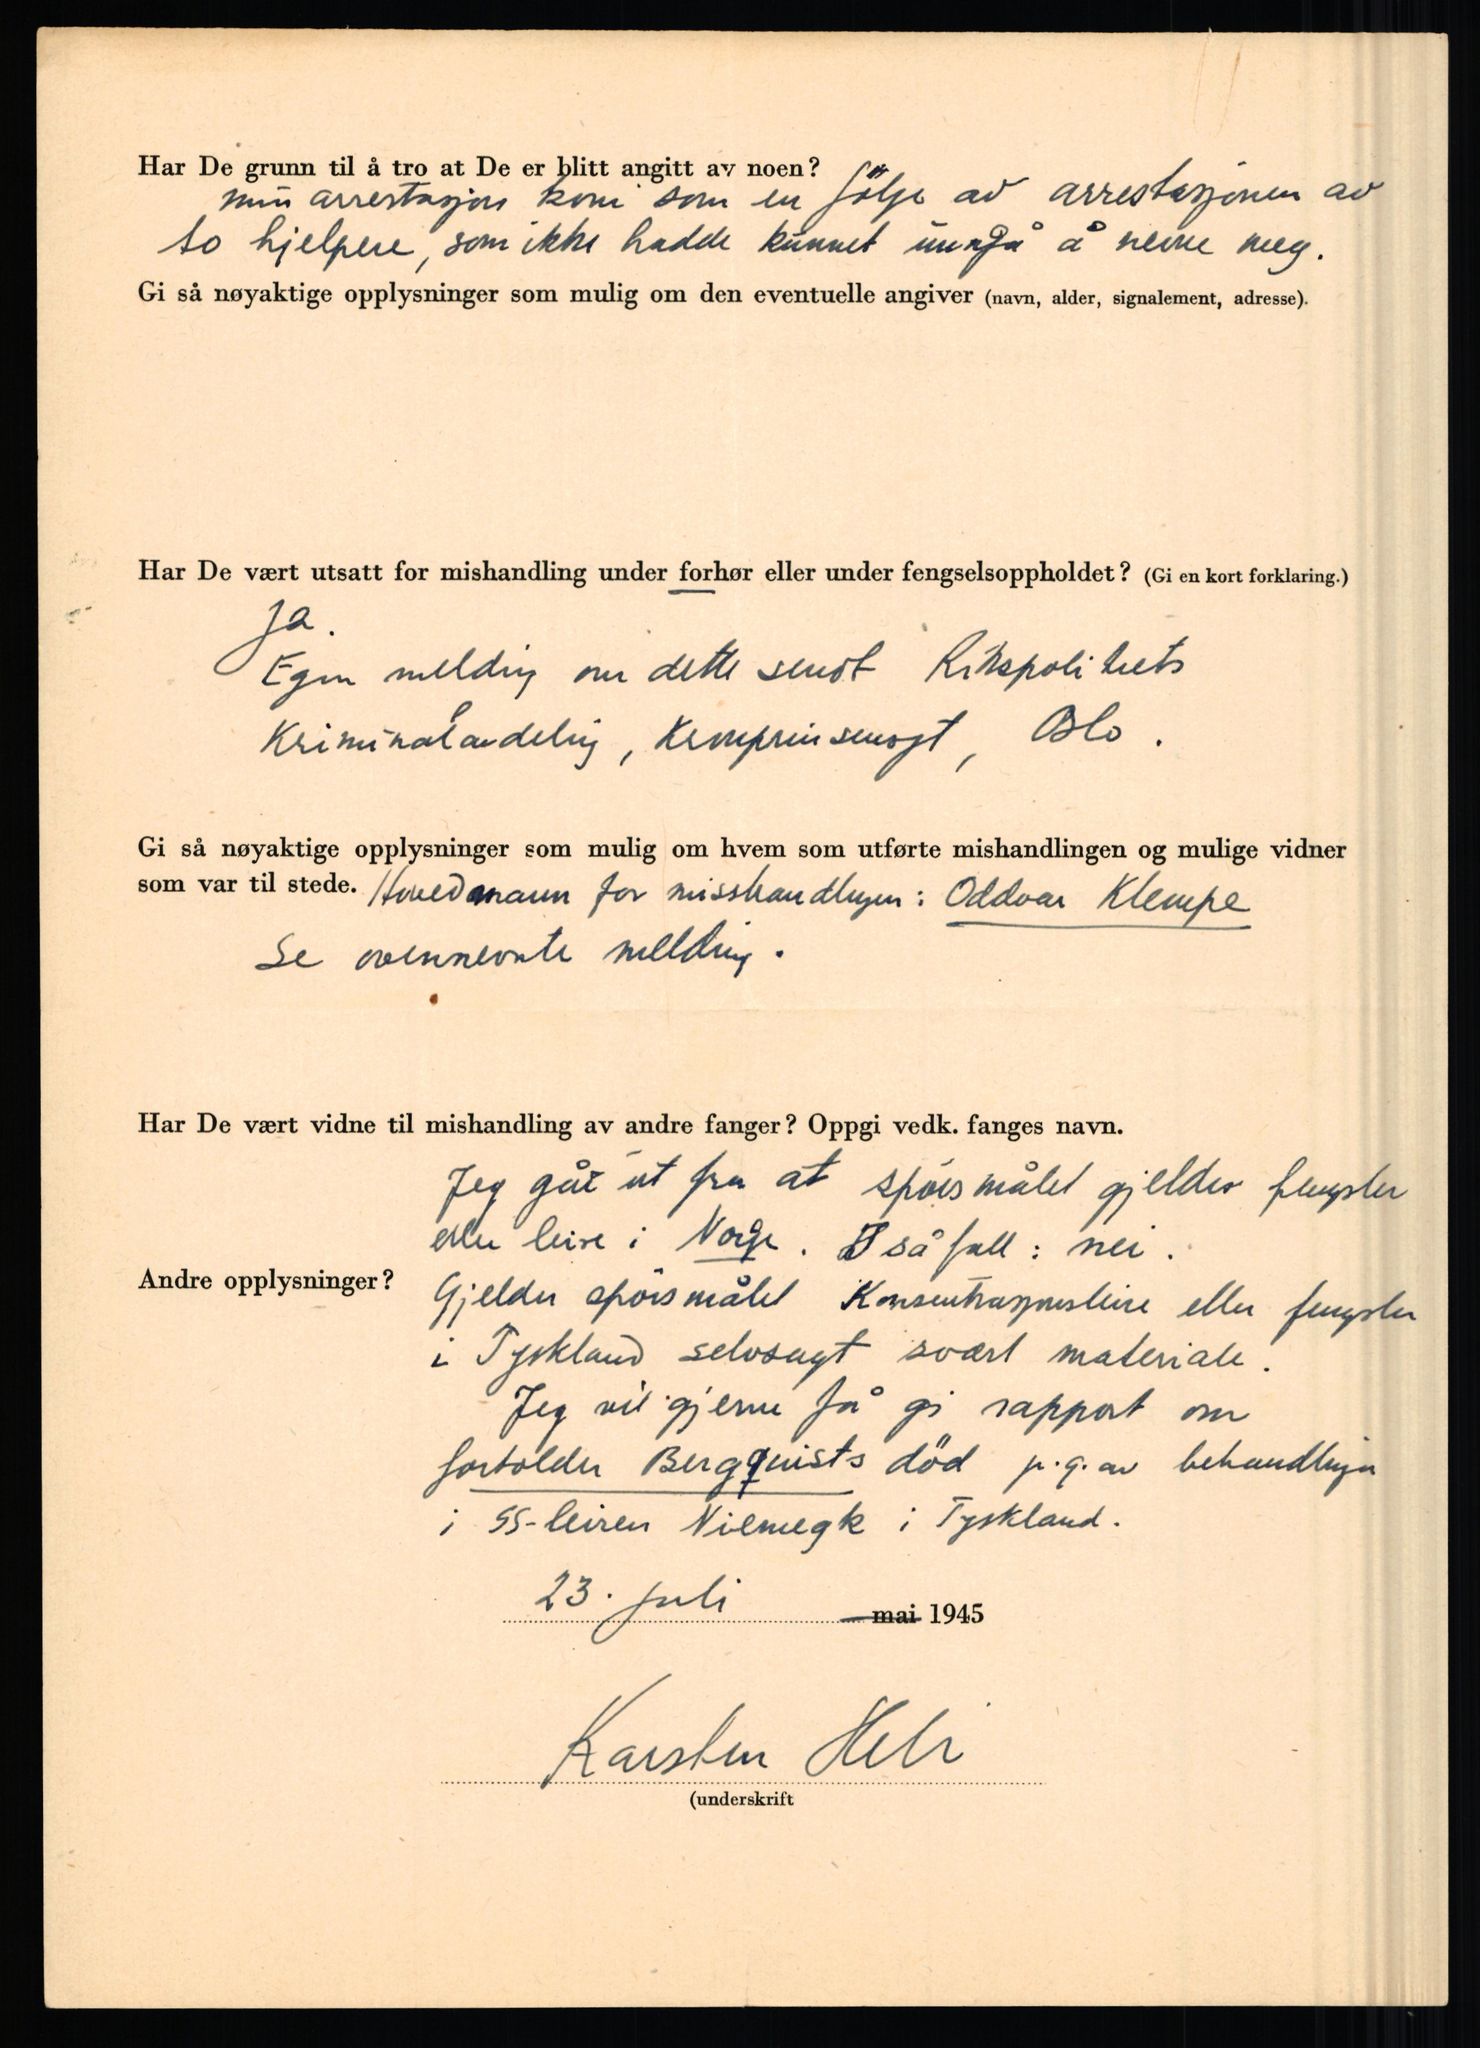 Har De grunn til å tro at De er blitt angitt av noen?
min arrestasjon kom som en følge av arrestasjonen av
to hjelpere, som ikke hadde kunnet unngå å nevne meg.
Gi så nøyaktige opplysninger som mulig om den eventuelle angiver (navn, alder, signalement, adresse).
Har De vært utsatt for mishandling under forhør eller under fengselsoppholdet? (Gi en kort forklaring.)
Ja.
Egen melding om dette sendt Rikspolitiets
Kriminalavdeling, Kronprinsensgt, Oslo.
Gi så nøyaktige opplysninger som mulig om hvem som utførte mishandlingen og mulige vidner
som var til stede. Hovedmann for misshandlingen: Oddvar Klempe
Se ovennevnte melding.
Har De vært vidne til mishandling av andre fanger? Oppgi vedk. fanges navn.
Jeg går ut fra at spörsmålet gjelder fengsler
eller leire i Norge. I så fall: nei.
Andre opplysninger?
Gjelder spörsmålet Konsentrasjonsleire eller fengsler
i Tyskland selvsagt svært materiale.
Jeg vil gjerne få gi rapport om
fortolder Bergquists död p.g.av behandlingen
i SS-leiren Niemegk i Tyskland.
23. juli mai 1945
Karsten
(underskrift